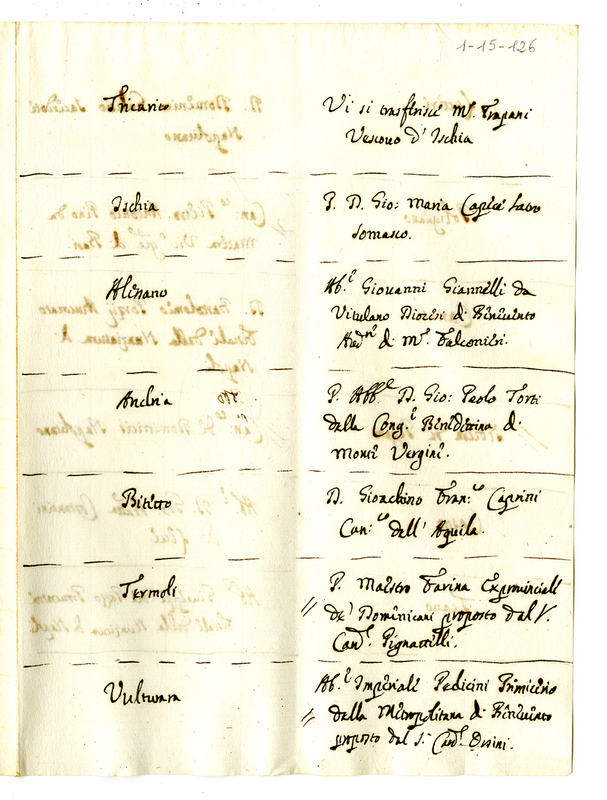 1-15-126
Tricarico
Vi si trasferisce M.r Trapani
Vescovo d' Ischia
Ischia
P. D. Gio: Maria Capece
Somasco.
Alessano
Ab.e Giovanni Giannelli da
Vitulano Diocesi di Benevento
di M.r Falconieri.
Andria
P. Abb.e D. Gio: Paolo Torti
della Cong.e Benedettina di
Monte Vergine.
Bitetto
D. Gioachino Fran.co
Can.co dell' Aquila.
Termoli
P. Maestro Farina Exprovinciale
// de' Domenicani proposto dal
Card. Pignattelli.
Vulturara
Ab.e Imperiale Pedicini Primicerio
// della Metropolitana di Benevento
proposto dal S. Card. Orsini.